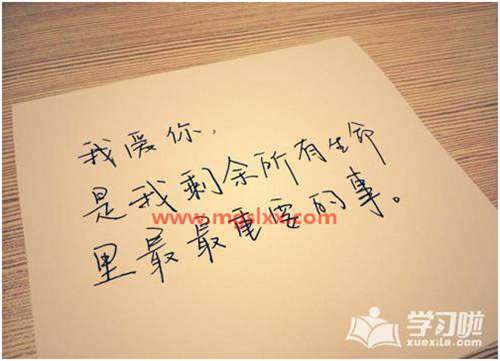 我爱你，
是我剩余所有生命
里最最重要的事。
学习啦
xuexila.com